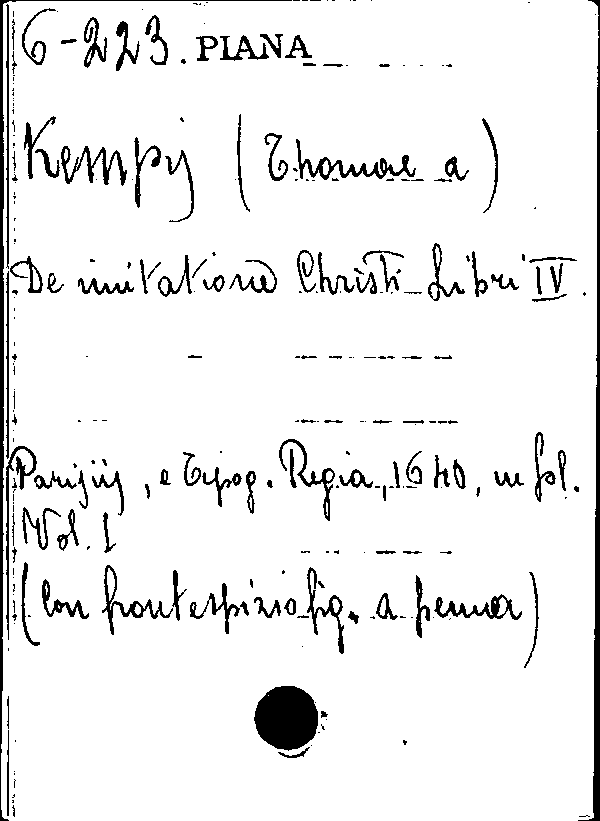 6-223. PIANA
Kempis (Thomae a)
De imitatione Christi Libri IV.
Parisiis, e Typog. Regia, 1640, in fol.
Vol. I
(Con frontespizio fig. a penna)